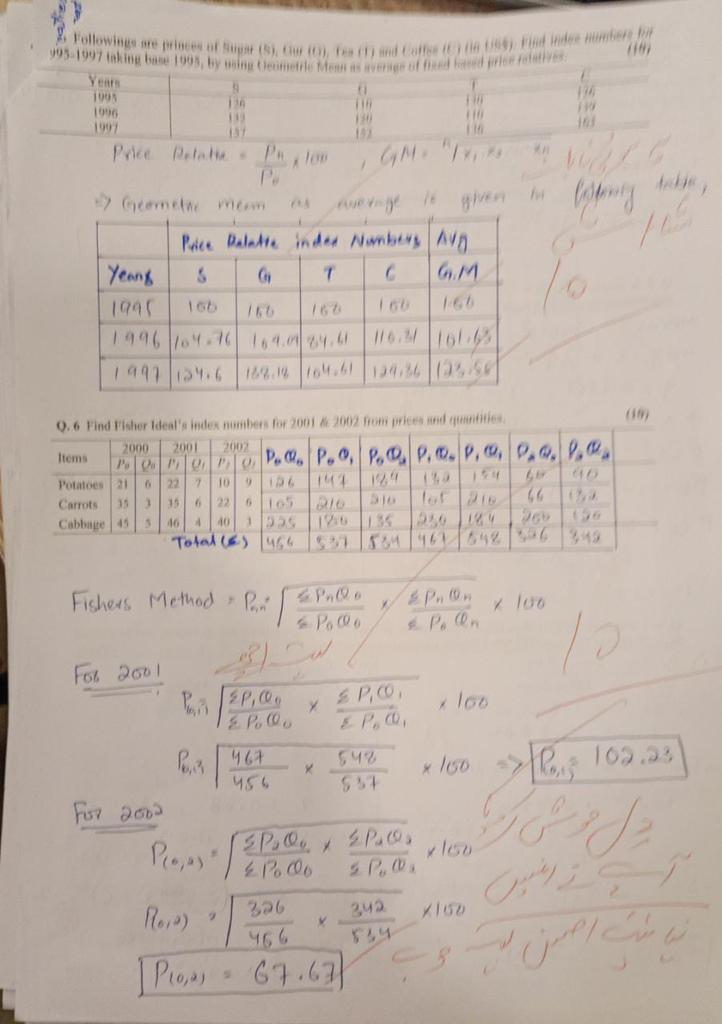 Followings are princes of Sugar (S), Gur (G), Tea (T) and Coffee (C) (in US$). Find index numbers for
995-1997 taking base 1995, by using Geometric Mean as average of fixed based price relatives. (10)
Years S G T C
1995 126 110 130 116
1996 132 120 110
1997 157 152 136
Price Relative = Pn/Po x 100 , GM =
=> Geometric mean as average is given in following table,
Price Relative index Numbers Avg
Years S G T C G.M
1995 100 100 100 100 100
1996 104.76 109.09 84.61 110.31 101.63
1997 124.6 138.18 104.61 129.36
10
Q. 6 Find Fisher Ideal's index numbers for 2001 & 2002 from prices and quantities. (10)
Items 2000 2001 2002 PoQo PoQ1 PoQ2 P1Qo P1Q1 P2Qo P2Q2
Po Qo P1 Q1 P2 Q2
Potatoes 21 6 22 7 10 9 126 147 189 132 154 60 90
Carrots 35 3 35 6 22 6 105 210 210 105 210 66 132
Cabbage 45 5 46 4 40 3 225 180 135 230 184 200 120
Total (Σ) 456 537 534 467 548 326 342
Fishers Method = Po,n = √ ΣPnQo/ΣPoQo x ΣPnQn/ΣPoQn x 100
10
For 2001
Po,1 = √ ΣP1Qo/ΣPoQo x ΣP1Q1/ΣPoQ1 x 100
Po,1 = √ 467/456 x 548/537 x 100 => Po,1 = 102.23
For 2002
P(0,2) = √ ΣP2Qo/ΣPoQo x ΣP2Q2/ΣPoQ2 x 100
P(0,2) = √ 326/456 x 342/534 x 100
P(0,2) = 67.67
دل خوش کر دیا
آپ نے